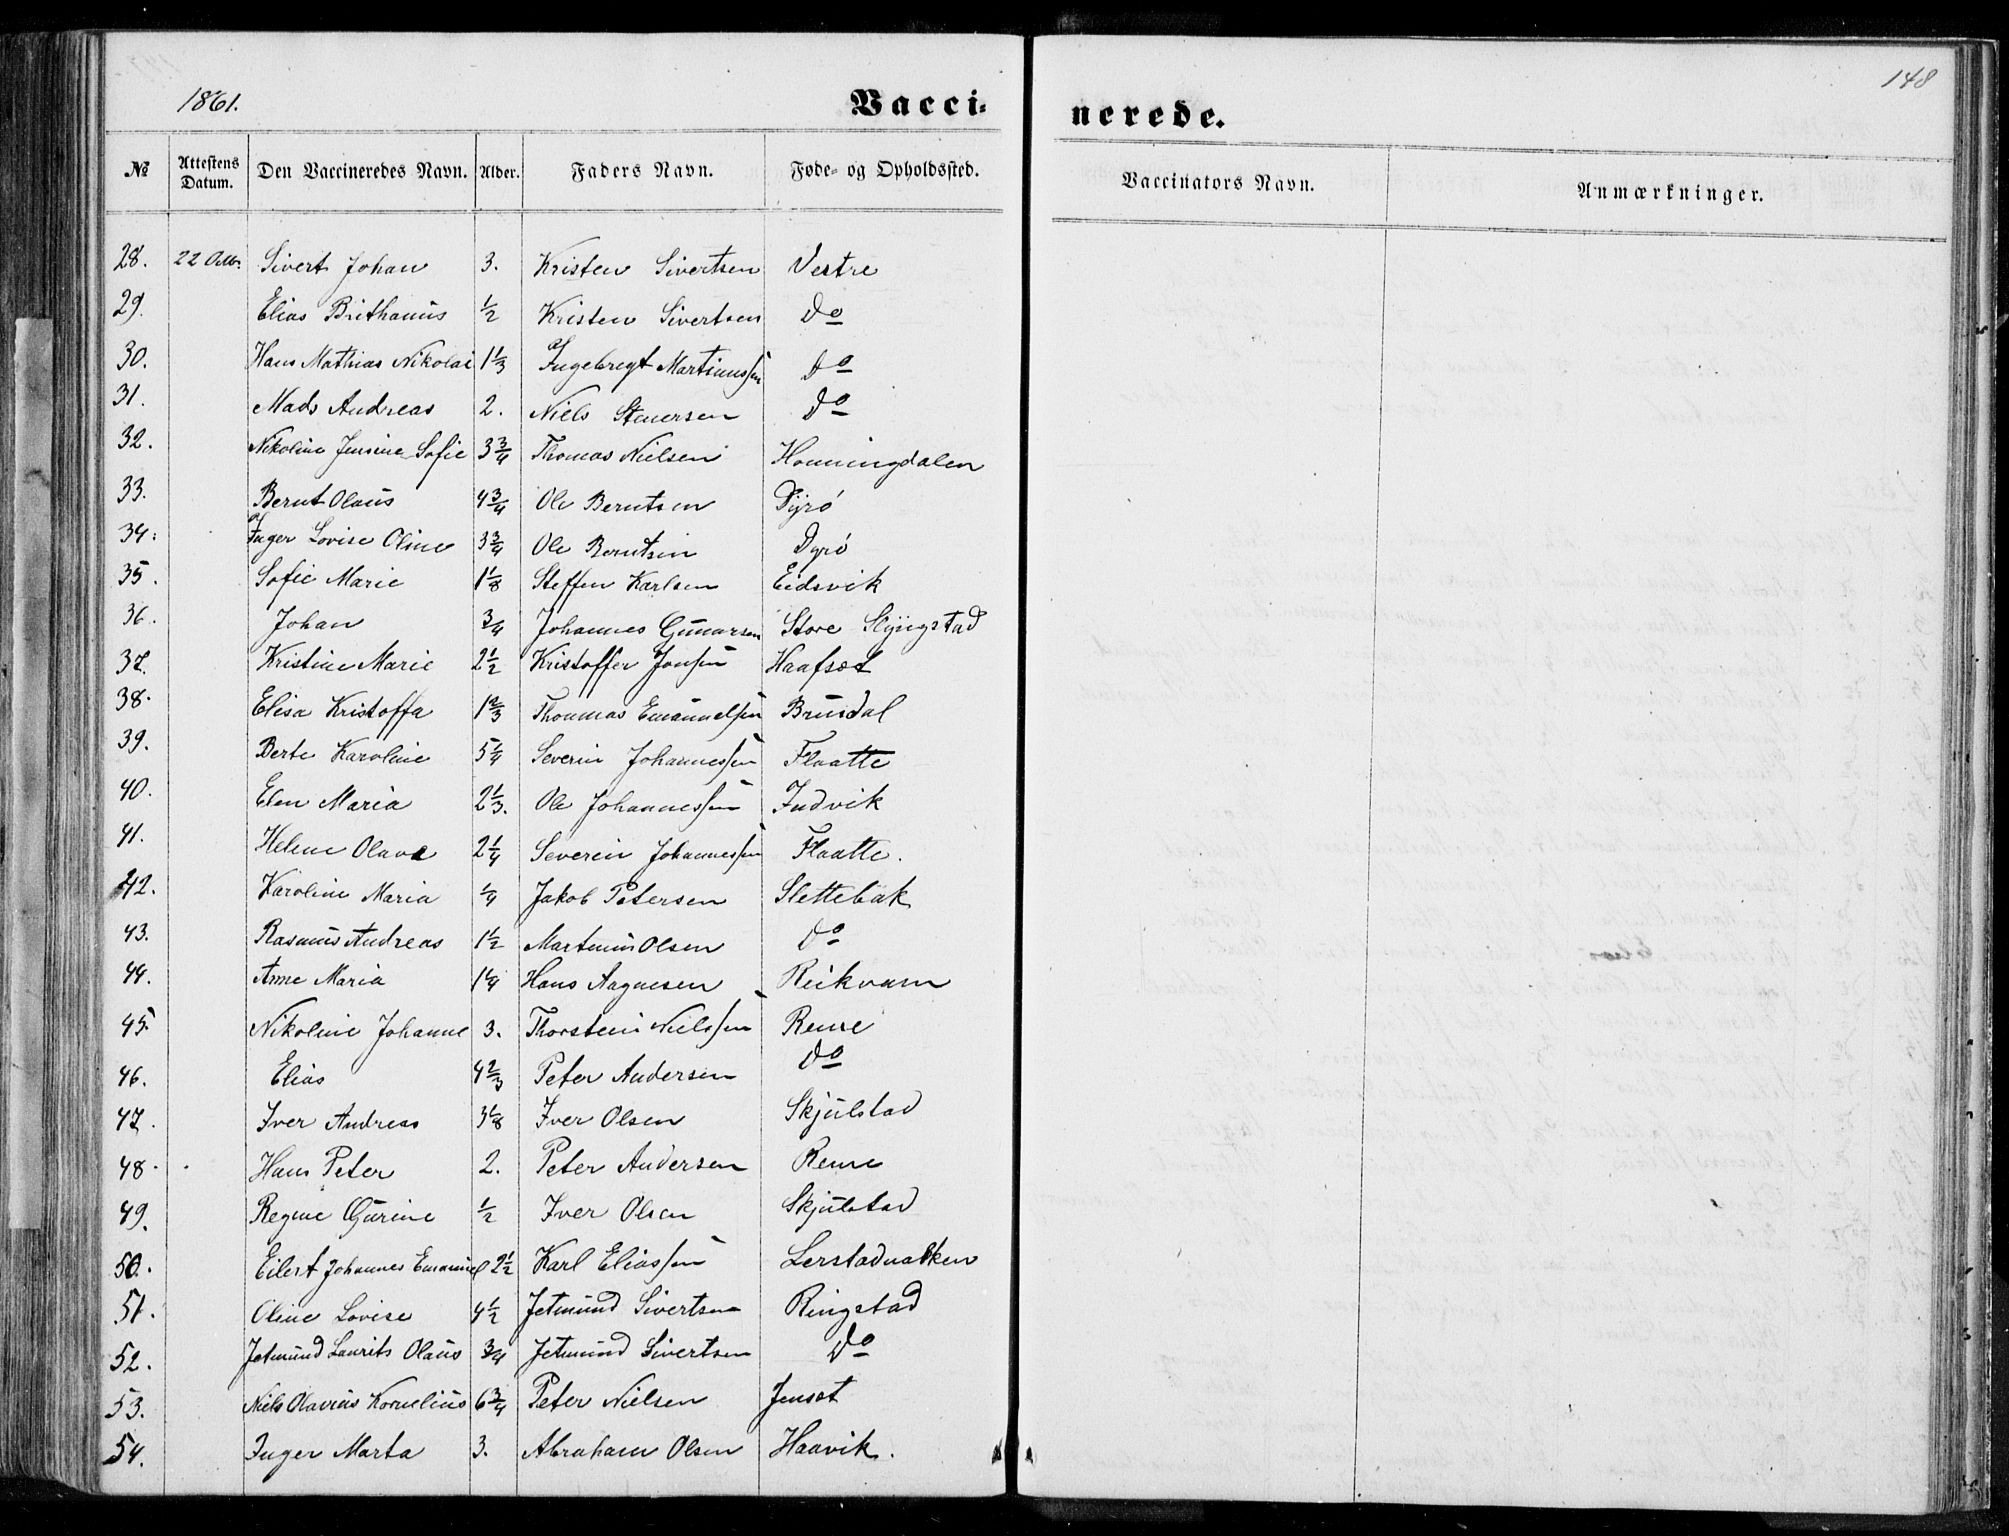 1861.
Vacci-
nerede.
148
№ Attestens Datum. Den Vaccineredes Navn. Alder. Faders Navn. Føde- og Opholdssted.
Vaccinators Navn. Anmærkninger.
28. 22 Octbr. Sivert Johan 3. Kristen Sivertsen Vestre
29. Elias Brithanus ½ Kristen Sivertsen Do
30. Hans Mathias Nikolai 1⅓ Ingebregt Martinussen Do
31. Mads Andreas 2. Niels Stenersen Do
32. Nikoline Jensine Sofie 3¾ Thomas Nielsen Honningdalen
33. Bernt Olaus 4¾ Ole Berntsen Dyrø
34. Inger Lovise Oline 3¾ Ole Berntsen Dyrø
35. Sofie Marie 1⅛ Steffen Karlsen Eidsvik
36. Johan ¾ Johannes Gunarsen Store Slyngstad
37. Kristine Marie 2½ Kristoffer Jonsen Haafsæt
38. Elisa Kristoffa 1⅔ Thommas Emanuelsen Brusdal
39. Berte Karoline 5¼ Severin Johannessen Flaatte
40. Elen Maria 2⅓. Ole Johannessen Indvik
41. Helene Olava 2¼ Severin Johannessen Flaatte.
42. Karoline Maria ¼ Jakob Petersen Slettebak
43. Rasmus Andreas 1½ Martinus Olsen Do
44. Anne Maria 1¼ Hans Aagnesen Reikvam
45. Nikoline Johanne 3. Thorstein Nielssen Reme
46. Elias 4⅔ Peter Andersen Do
47. Iver Andreas 3⅛ Iver Olsen Skjulstad
48. Hans Peter 2. Peter Andersen Reme
49. Regine Gurine ½ Iver Olsen Skjulstad
50. Eilert Johannes Emanuel 2½ Karl Eliassen Lerstadnakken
51. Oline Lovise 4½ Jetmund Sivertsen Ringstad
52. Jetmund Laurits Olaus ¾ Jetmund Sivertsen Do
53. Niels Olavius Kornelius 6¾ Peter Nielsen Jensæt
54. Inger Marta 3. Abraham Olsen Haavik.